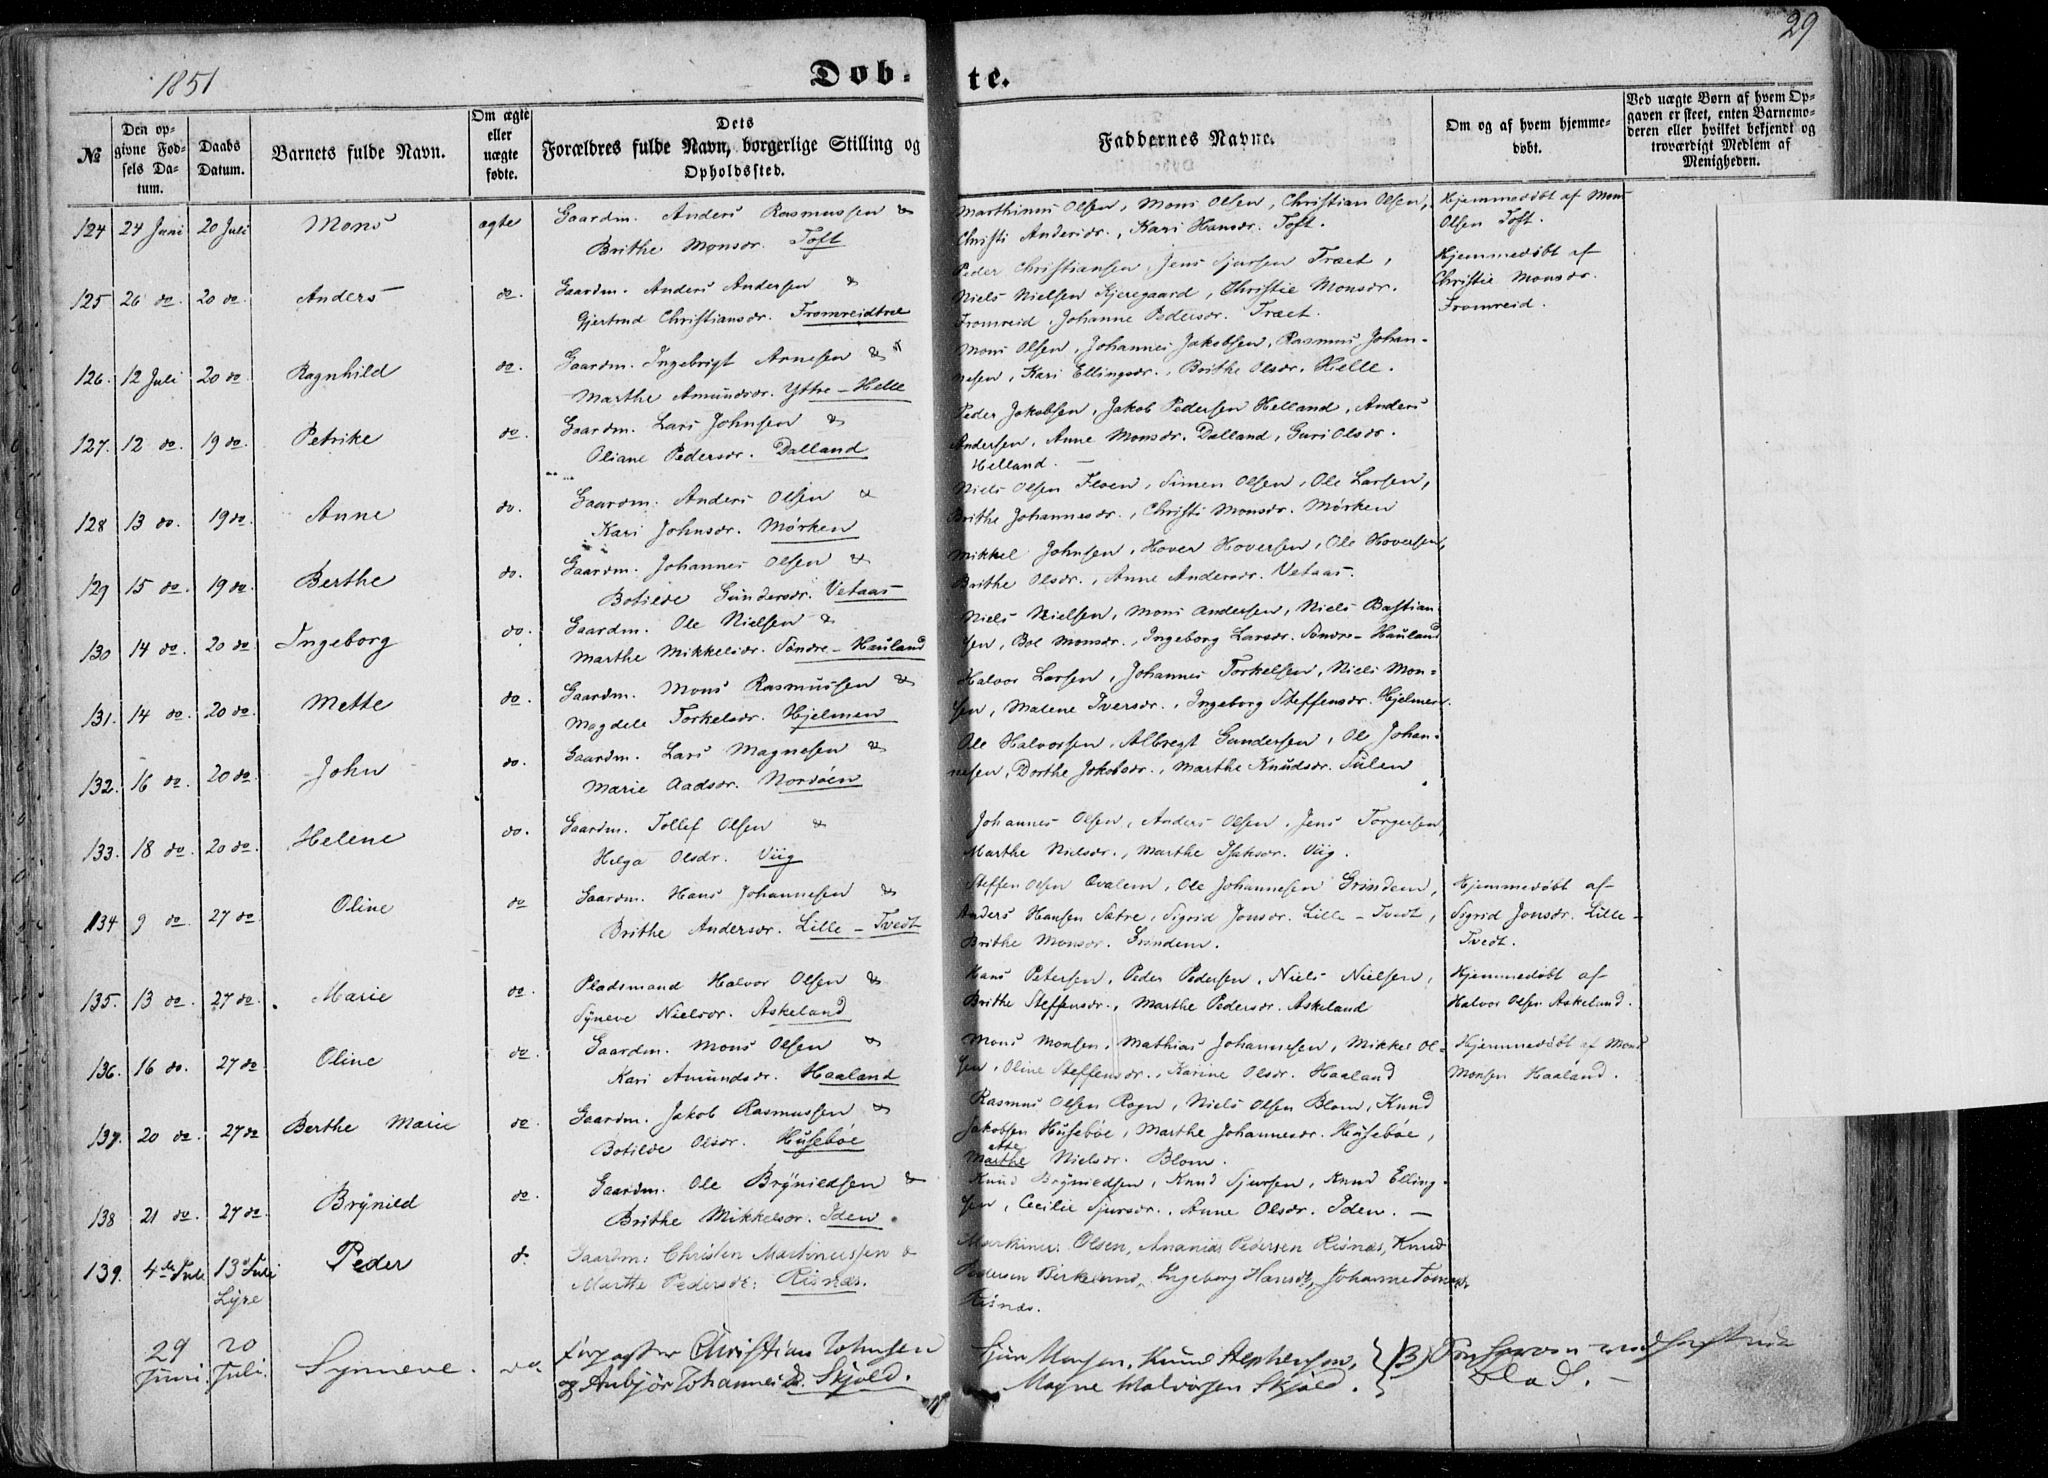 29
1851
Døb-te.
№
Den opgivne Fødsels Datum.
Daabs Datum.
Barnets fulde Navn.
Om ægte eller uægte fødte.
Dets Forældres fulde Navn, borgerlige Stilling og Opholdssted.
Faddernes Navne.
Om og af hvem hjemmedøbt.
Ved uægte Børn af hvem Opgaven er skeet, enten Barnemoderen eller hvilket bekjendt og troværdigt Medlem af Menigheden.
124 24 Juni 20 Juli Mons ægte Gaardm. Anders Rasmussen &
Brithe Monsdr. Toft
Marthinus Olsen, Mons Olsen, Christian Olsen,
Christi Andersdr., Kari Hansdr. Toft.
Hjemmedøbt af Mons
Olsen Toft.
125 26 do. 20 do. Anders do. Gaardm. Anders Andersen &
Gjertrud Christiansdr. Fromreidtræ
Peder Christiansen, Jens Sjursen Træet,
Niels Nielsen Kjeregaard, Christie Monsdr.
Fromreid, Johanne Pedersdr. Træet.
Hjemmedøbt af
Christie Monsdr.
Fromreid.
126. 12 Juli 20 do Ragnhild do. Gaardm. Ingebrigt Arnesen &
Marthe Amundsdr. Ytre-Helle
Mons Olsen, Johannes Jakobsen, Rasmus Johan-
nesen, Kari Ellingsdr., Brithe Olsdr. Helle.
127. 12 do. 19 do. Petrike do. Gaardm. Lars Johnsen &
Oliane Pedersdr. Dalland
Peder Jakobsen, Jakob Pedersen Helland, Anders
Andersen, Anne Monsdr. Dalland, Guri Olsdr.
Helland. —
128 13 do. 19 do. Anne do. Gaardm. Anders Olsen &
Kari Johnsdr. Mørken
Niels Olsen Floen, Simen Olsen, Ole Larsen,
Brithe Johannesdr., Christi Monsdr. Mørken
129 15 do. 19 do. Berthe do. Gaardm. Johannes Olsen &
Botilde Gundersdr. Vetaas
Mikkel Johnsen, Hover Hoversen, Ole Hoversen,
Brithe Olsdr., Anne Andersdr. Vetaas.
130 14 do. 20 do Ingeborg do. Gaardm. Ole Nielsen &
Marthe Mikkelsdr. Søndre-Hauland
Niels Nielsen, Mons Andersen, Niels Bastian-
sen, Bol Monsdr., Ingeborg Larsdr. Søndre-Hauland
131. 14 do. 20 do. Mette do. Gaardm. Mons Rasmussen &
Magdele Torkelsdr. Hjelmen
Halvor Larsen, Johannes Torkelsen, Niels Mon-
sen, Malene Iversdr., Ingeborg Steffensdr. Hjelmen.
132. 16 do. 20 do. John do. Gaardm. Lars Magnesen &
Marie Aadsdr. Nordøen
Ole Halvorsen, Albregt Gundersen, Ole Johan-
nesen, Dorthe Jakobsdr., Marthe Knudsdr. Sulen
133. 18 do 20 do. Helene do. Gaardm. Tollef Olsen &
Helga Olsdr. Viig
Johannes Olsen, Anders Olsen, Jens Torgersen,
Marthe Nielsdr., Marthe Isaksdr. Viig.
134 9 do 27 do Oline do Gaardm. Hans Johannesen &
Brithe Andersdr. Lille-Tvedt
Steffen Olsen Qvalem, Ole Johannesen Grindem,
Anders Hansen Sætre, Sigrid Jonsdr. Lille-Tvedt,
Brithe Monsdr. Grindem.
Hjemmedøbt af
Sigrid Jonsdr. Lille-
Tvedt.
135. 13 do. 27 do. Marie do. Pladsmand Halvor Olsen &
Syneve Nielsdr. Askeland
Hans Petersen, Peder Pedersen, Niels Nielsen,
Brithe Steffensdr., Marthe Pedersdr. Askeland
Hjemmedøbt af
Halvor Olsen Askeland.
136. 16 do. 27 do Oline do. Gaardm. Mons Olsen &
Kari Amundsdr. Haaland
Mons Monsen, Mathias Johannesen, Mikkel Ol-
sen, Oline Steffensdr., Karine Olsdr. Haaland
Hjemmedøbt af Mons
Monsen Haaland.
137. 20 do. 27 do Berthe Marie do. Gaardm. Jakob Rasmussen &
Botilde Olsdr. Husebøe
Rasmus Olsen Rogn, Niels Olsen Blom, Knud
Jakobsen Husebøe, Marthe Johannesdr. Husebøe,
Marthe Nielsdr. Blom.
138 21 do. 27 do. Brynild do. Gaardm. Ole Brynildsen &
Brithe Mikkelsdr. Iden.
Knud Brynildsen, Knud Sjursen, Knud Elling-
sen, Cecilie Sjursdr., Anne Olsdr. Iden. —
139. 4de Juli 13 Juli
Lyse
Peder d. Gaardm: Christen Martinussen &
Marthe Pedersdr: Risnæs.
Olsen, Ananias Pedersen Risnæs, Knud
Pedersen Birkeland, Ingeborg Hansdr, Johanne
Risnæs.
29
Juni.
20
Juli.
Synneve. do Forpagter Christian Johnsen
og Anbjør Johannesdr. Skjold.
Sjur Monsen, Knud Stephensen,
Magne Halvorsen Skjold.
Blad. —